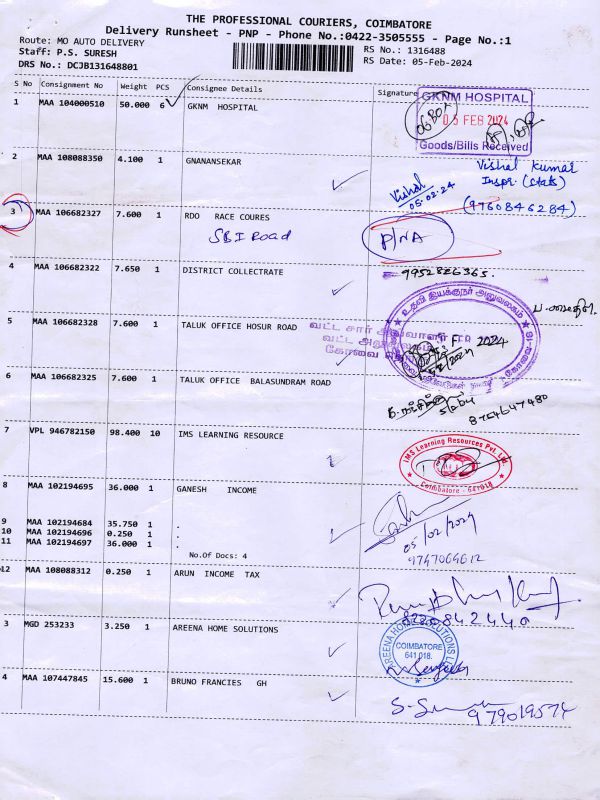 THE PROFESSIONAL COURIERS, COIMBATORE
Delivery Runsheet - PNP - Phone No.:0422-3505555 - Page No.:1
Route: MO AUTO DELIVERY
RS No.: 1316488
Staff: P.S. SURESH
RS Date: 05-Feb-2024
DRS No.: DCJB131648801
S No Consignment No Weight PCS Consignee Details Signature
1 MAA 104000510 50.000 6 GKNM HOSPITAL
06 BOX
GKNM HOSPITAL
05 FEB 2024
Goods/Bills Received
2 MAA 108088350 4.100 1 GNANANSEKAR
Vishal
05.02.24
Vishal Kumar
Inspr. (stats)
(9760846284)
3 MAA 106682327 7.600 1 RDO RACE COURES
SBI Road
P/NA
4 MAA 106682322 7.650 1 DISTRICT COLLECTRATE
9952826365.
உதவி இயக்குநர் அலுவலகம்
5 MAA 106682328 7.600 1 TALUK OFFICE HOSUR ROAD
வட்ட சார்
வட்ட
கோவை
2024
6 MAA 106682325 7.600 1 TALUK OFFICE BALASUNDRAM ROAD
8754647480
7 VPL 946782150 98.400 10 IMS LEARNING RESOURCE
IMS Learning Resources Pvt. Ltd.
Coimbatore - 641018
8 MAA 102194695 36.000 1 GANESH INCOME
9 MAA 102194684 35.750 1 .
10 MAA 102194696 0.250 1 .
11 MAA 102194697 36.000 1 .
No.Of Docs: 4
05/02/2024
9747069612
12 MAA 108088312 0.250 1 ARUN INCOME TAX
3 MGD 253233 3.250 1 AREENA HOME SOLUTIONS
AREENA HOME SOLUTIONS
COIMBATORE
641 018.
4 MAA 107447845 15.600 1 BRUNO FRANCIES GH
979019574